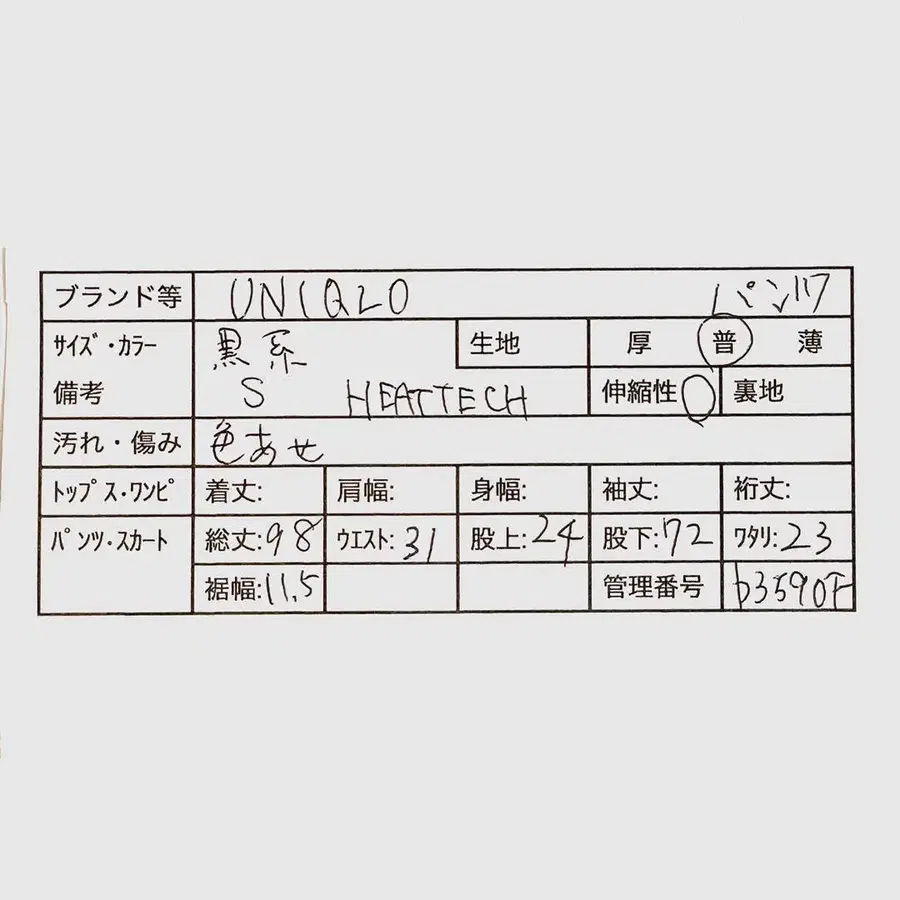 ブランド等 UNIQLO パンツ
サイズ・カラー 黒系 生地 厚 普 薄
備考 S HEATTECH 伸縮性 裏地
汚れ・傷み 色あせ
トップス・ワンピ 着丈: 肩幅: 身幅: 袖丈: 裄丈:
パンツ・スカート 総丈:98 ウエスト:31 股上:24 股下:72 ワタリ:23
裾幅:11.5 管理番号 b3590F